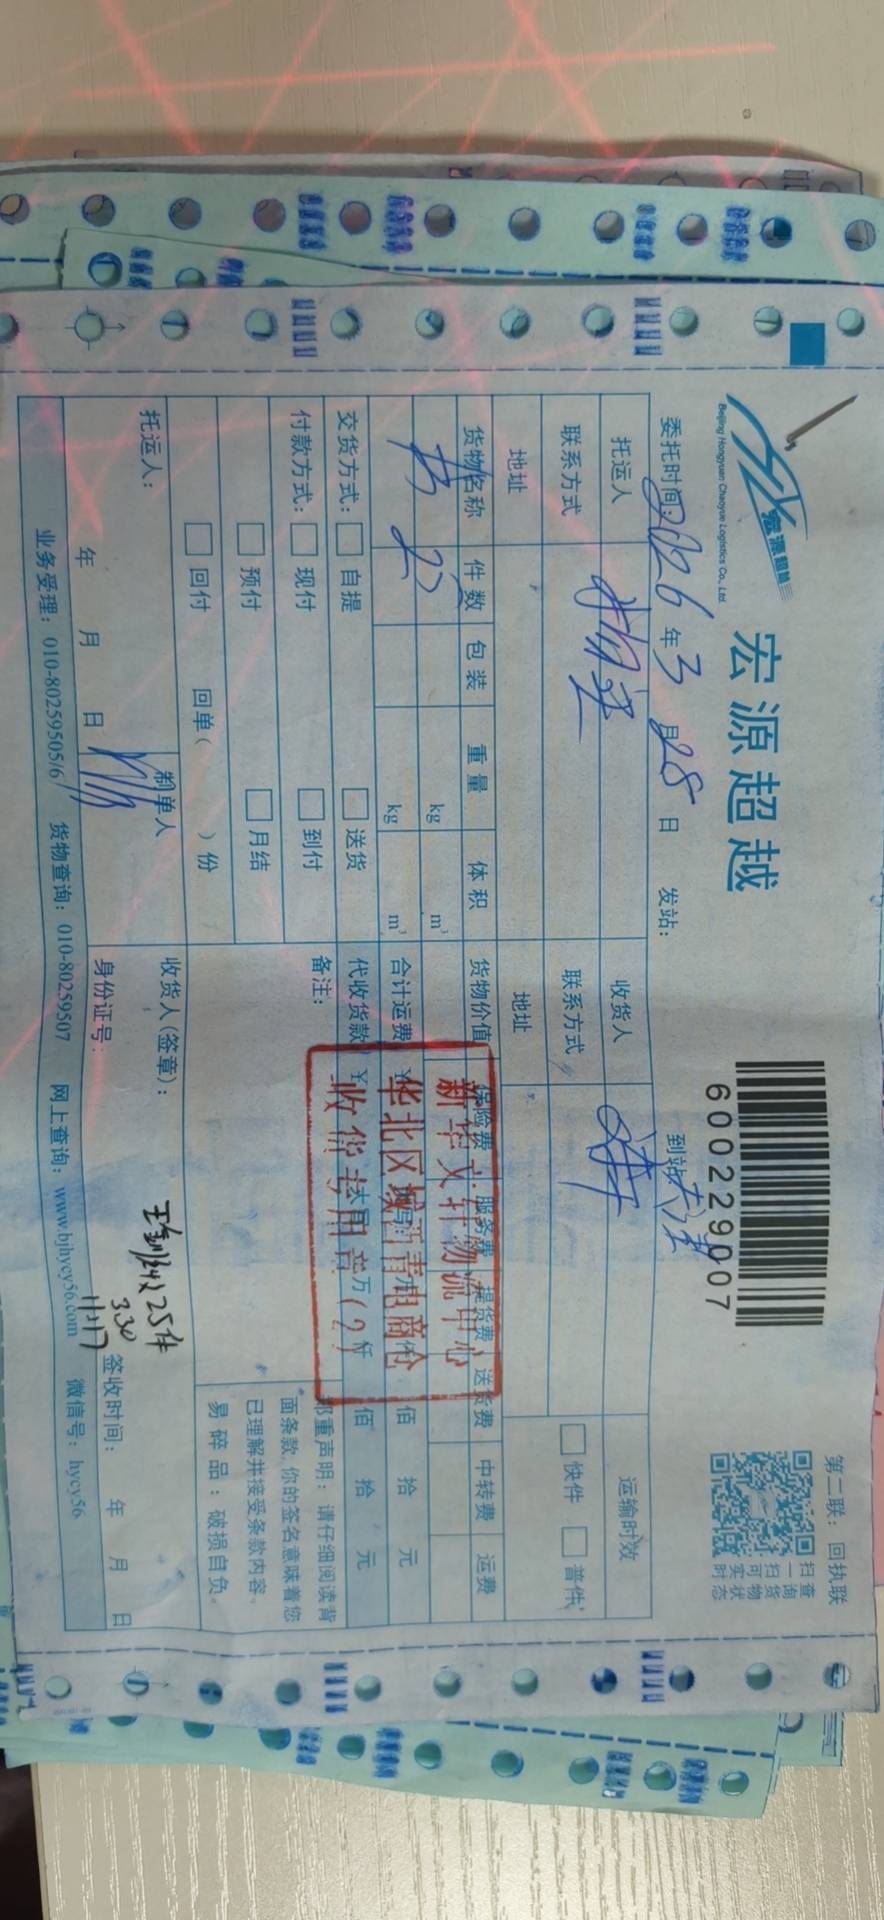 宏源超越
Beijing Hongyuan Chaoyue Logistics Co., Ltd.
宏源超越
6002229007
第二联：回执联
扫查
一询
扫货
可物
实状
时态
委托时间：2026年3月28日 发站： 到站：天津
托运人 收货人 运输时效
联系方式 联系方式 快件 普件
地址 地址
货物名称 件数 包装 重量 体积 货物价值 保险费 服务费 提货费 送货费 中转费 运费
书 25 kg m³
kg m³ 合计运费 ¥ 佰 拾 元
交货方式： 自提 送货 代收货款 ¥ 万 仟 佰 拾 元
付款方式： 现付 到付 备注：
预付 月结
回付 回单（ ）份
新华文轩物流中心
华北区域西青电商仓
收货专用章（2）
郑重声明：请仔细阅读背
面条款，你的签名意味着您
已理解并接受条款内容。
易碎品：破损自负。
托运人： 制单人 收货人（签章）：
25件
3.30
11:17
年 月 日 身份证号： 签收时间： 年 月 日
业务受理：010-80259505/6 货物查询：010-80259507 网上查询：www.bjhycy56.com 微信号：hycy56